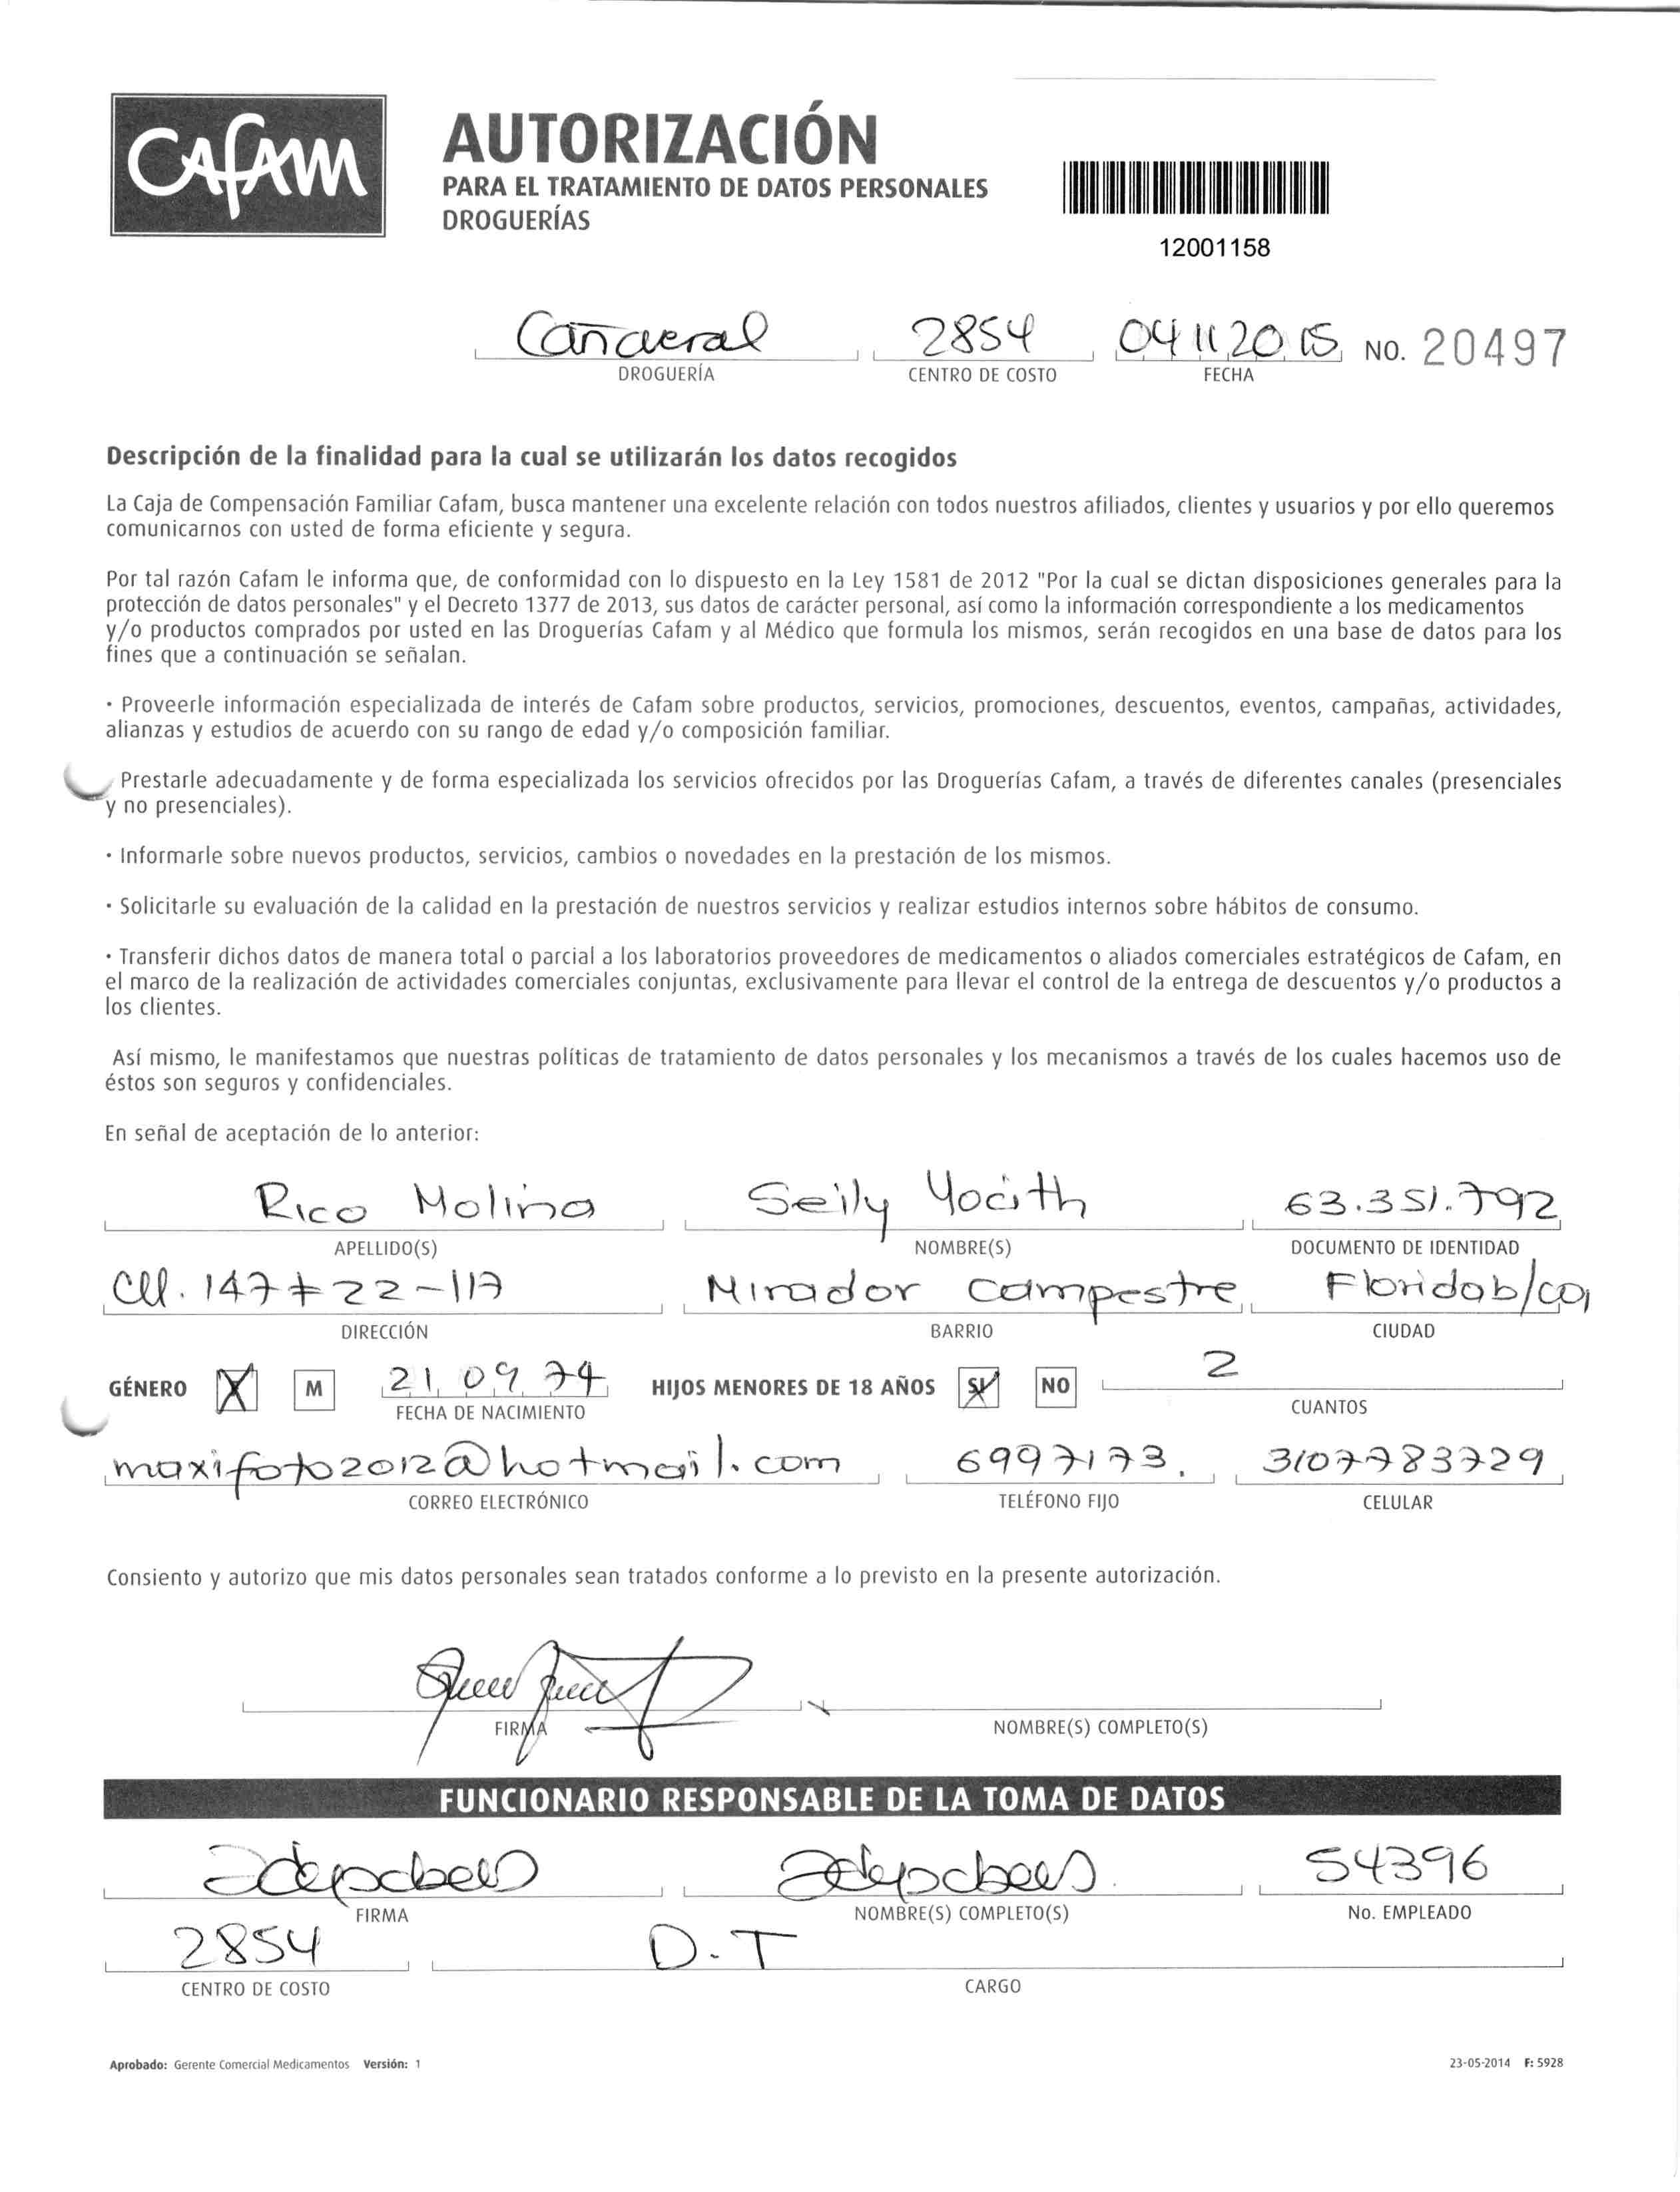 CAFAM
AUTORIZACIÓN
PARA EL TRATAMIENTO DE DATOS PERSONALES
DROGUERÍAS
12001158
Cañaveral 2854 04 11 2015 NO. 20497
DROGUERÍA CENTRO DE COSTO FECHA
Descripción de la finalidad para la cual se utilizarán los datos recogidos
La Caja de Compensación Familiar Cafam, busca mantener una excelente relación con todos nuestros afiliados, clientes y usuarios y por ello queremos
comunicarnos con usted de forma eficiente y segura.
Por tal razón Cafam le informa que, de conformidad con lo dispuesto en la Ley 1581 de 2012 "Por la cual se dictan disposiciones generales para la
protección de datos personales" y el Decreto 1377 de 2013, sus datos de carácter personal, así como la información correspondiente a los medicamentos
y/o productos comprados por usted en las Droguerías Cafam y al Médico que formula los mismos, serán recogidos en una base de datos para los
fines que a continuación se señalan.
· Proveerle información especializada de interés de Cafam sobre productos, servicios, promociones, descuentos, eventos, campañas, actividades,
alianzas y estudios de acuerdo con su rango de edad y/o composición familiar.
Prestarle adecuadamente y de forma especializada los servicios ofrecidos por las Droguerías Cafam, a través de diferentes canales (presenciales
y no presenciales).
· Informarle sobre nuevos productos, servicios, cambios o novedades en la prestación de los mismos.
· Solicitarle su evaluación de la calidad en la prestación de nuestros servicios y realizar estudios internos sobre hábitos de consumo.
· Transferir dichos datos de manera total o parcial a los laboratorios proveedores de medicamentos o aliados comerciales estratégicos de Cafam, en
el marco de la realización de actividades comerciales conjuntas, exclusivamente para llevar el control de la entrega de descuentos y/o productos a
los clientes.
Así mismo, le manifestamos que nuestras políticas de tratamiento de datos personales y los mecanismos a través de los cuales hacemos uso de
éstos son seguros y confidenciales.
En señal de aceptación de lo anterior:
Rico Molina Seily Yocith 63.351.792
APELLIDO(S) NOMBRE(S) DOCUMENTO DE IDENTIDAD
Cll. 147 # 22-117 Mirador Campestre Floridab/ca
DIRECCIÓN BARRIO CIUDAD
GÉNERO X M 21 09 74 HIJOS MENORES DE 18 AÑOS SI NO 2
FECHA DE NACIMIENTO CUANTOS
maxifoto2012@hotmail.com 6997173. 3107783729
CORREO ELECTRÓNICO TELÉFONO FIJO CELULAR
Consiento y autorizo que mis datos personales sean tratados conforme a lo previsto en la presente autorización.
FIRMA NOMBRE(S) COMPLETO(S)
FUNCIONARIO RESPONSABLE DE LA TOMA DE DATOS
54396
FIRMA NOMBRE(S) COMPLETO(S) No. EMPLEADO
2854 D.T
CENTRO DE COSTO CARGO
Aprobado: Gerente Comercial Medicamentos Versión: 1 23-05-2014 F: 5928